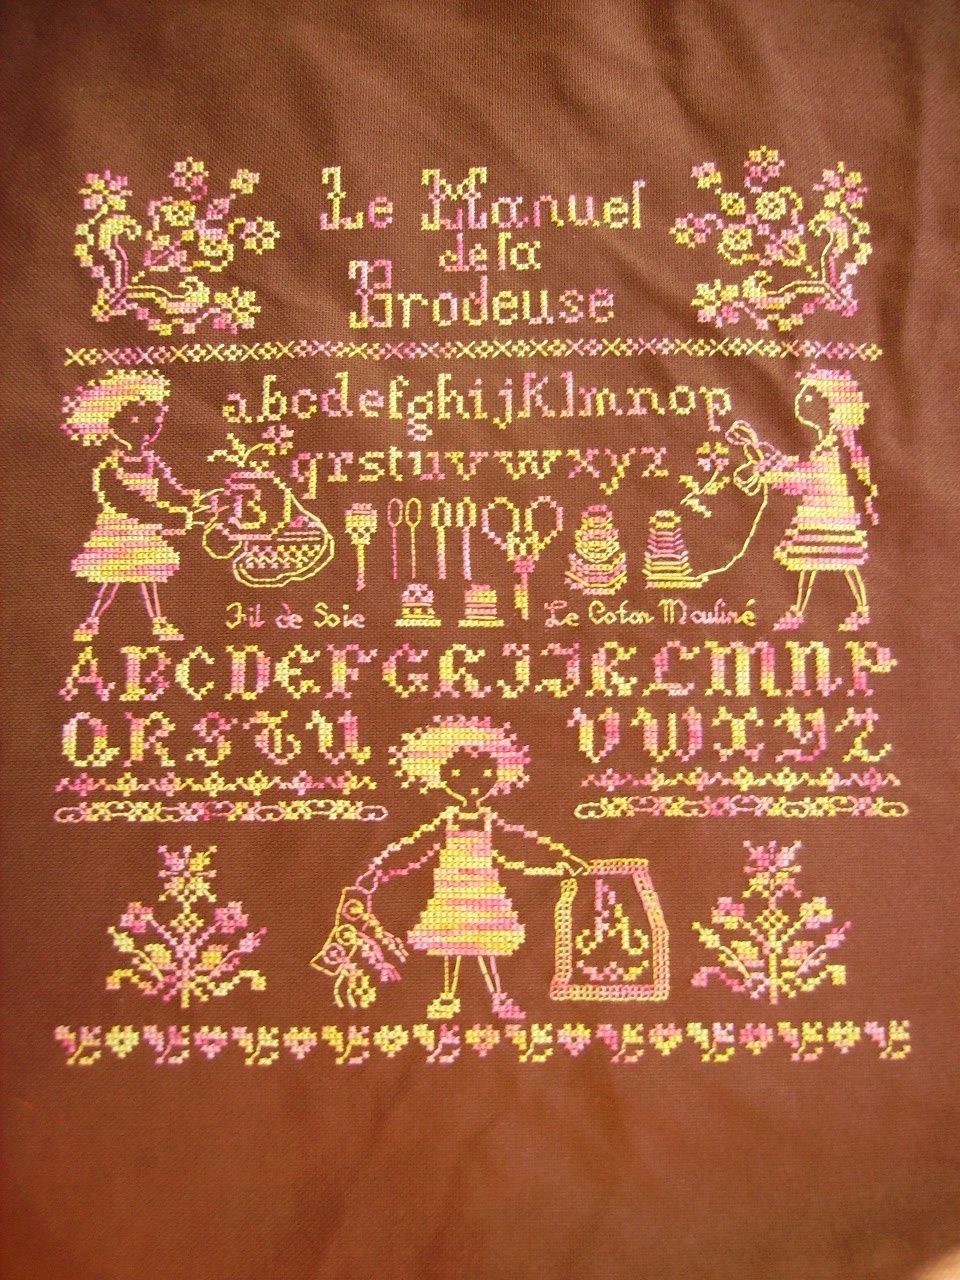 Le Manuel
de la
Brodeuse
abcdefghijklmnop
qrstuvwxyz
B
Fil de Soie Le Coton Mouliné
ABCDEFGHIJKLMNOP
QRSTU VWXYZ
A